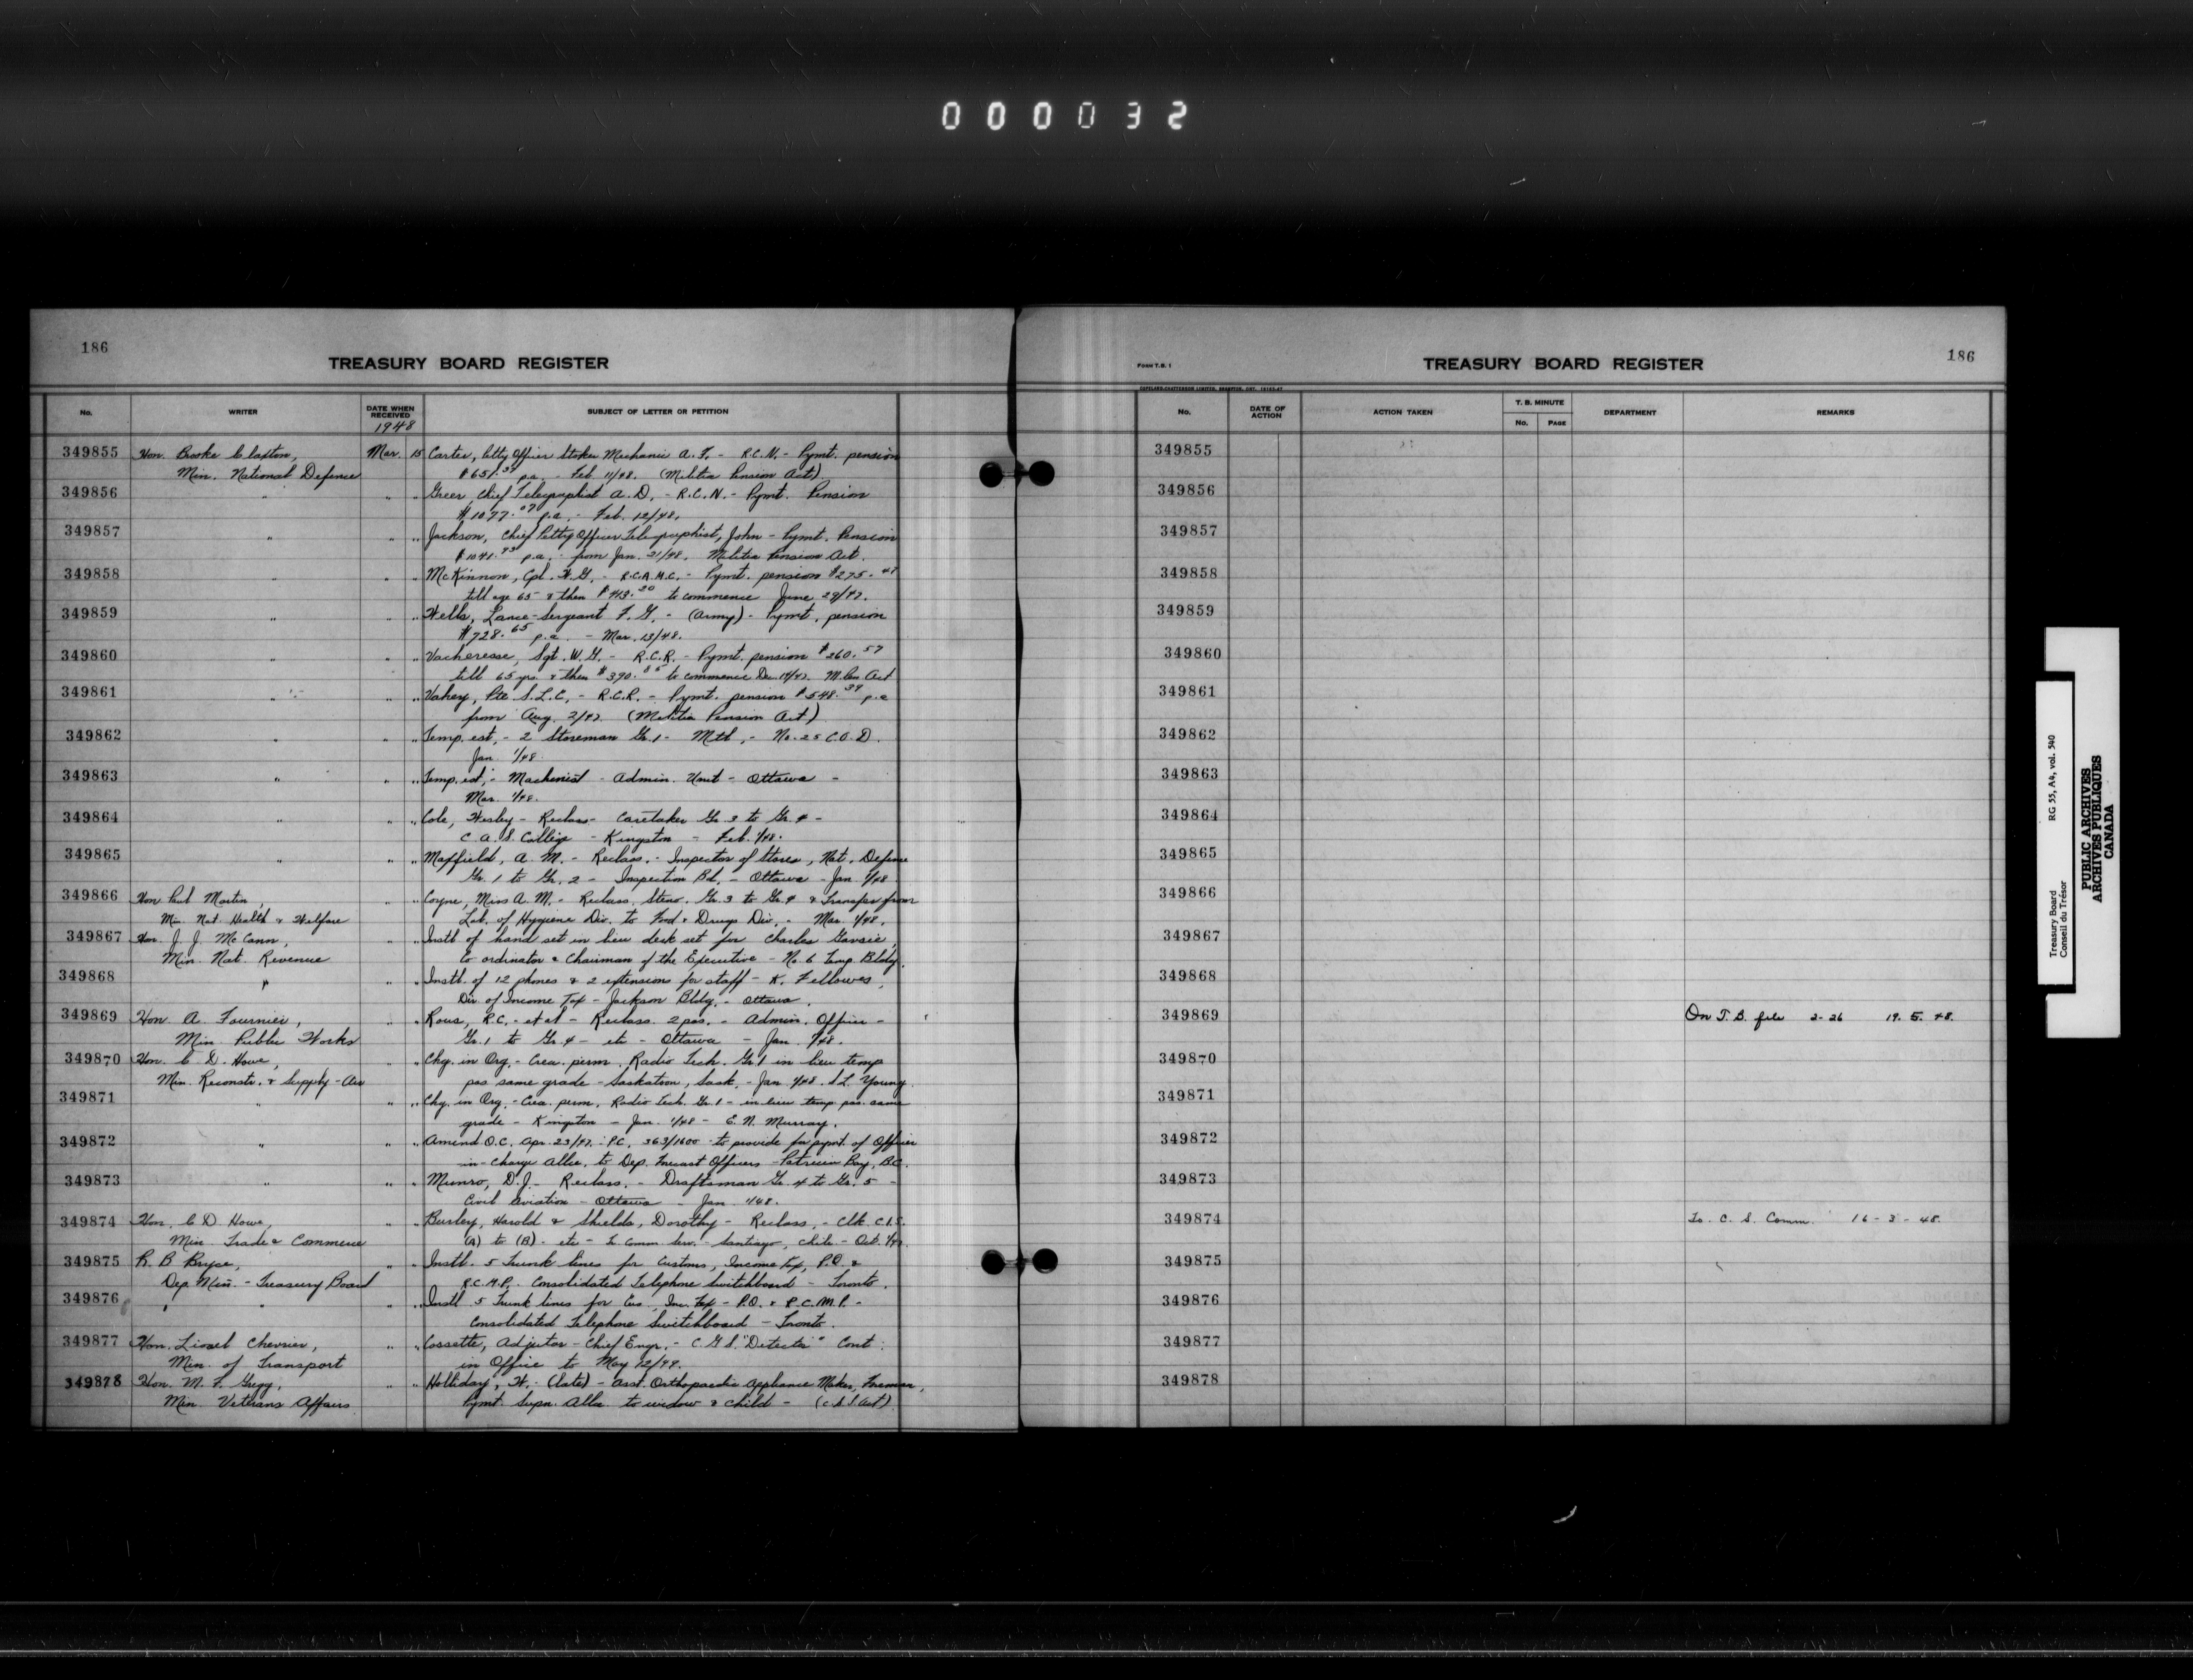 000032
186
TREASURY BOARD REGISTER
No.
WRITER
DATE WHEN RECEIVED
1948
SUBJECT OF LETTER OR PETITION
349855 Hon. Brooke Claxton, Mar. 15 Carter, Petty Officer Stoker Mechanic A. F. - R.C.N. - Pymt. pension
Min. National Defence $651. p.a. - Feb 11/48. (Militia Pension Act)
349856 " " " Greer, Chief Telegraphist A. D. - R.C.N. - Pymt. Pension
$1077.07 p.a. - Feb. 12/48.
349857 " " " Jackson, Chief Petty Officer Telegraphist, John - Pymt. Pension
$1041. p.a. - from Jan. 21/48. Militia Pension Act.
349858 " " " McKinnon, Cpl. H. G. - R.C.A.M.C. - Pymt. pension $275.47
till age 65 & then $413.20 to commence June 29/47.
349859 " " " Wells, Lance-Sergeant F. G. - (Army) - Pymt. pension
$728.65 p.a. - Mar. 13/48.
349860 " " " Vacheresse, Sgt. W. G. - R.C.R. - Pymt. pension $260.57
till 65 yrs. & then $390.85 to commence Dec. 14/47. M. Pen Act
349861 " " " Vahey, Pte S.L.C. - R.C.R. - Pymt. pension $548.39 p.a
from Aug. 2/47. (Militia Pension Act)
349862 " " " Temp. est. - 2 Storeman Gr. 1 - Mtl. - No. 25 C.O.D.
Jan 1/48.
349863 " " " Temp. est. - Machinist - Admin. Unit - Ottawa -
Mar. 1/48.
349864 " " Cole, Wesley - Reclass - Caretaker Gr. 3 to Gr. 4 -
C. A. S. College - Kingston - Feb. 1/48.
349865 " " " Maxfield, A. M. - Reclass. - Inspector of Stores, Nat. Defence
Gr. 1 to Gr. 2 - Inspection Bd. - Ottawa - Jan. 1/48
349866 Hon Paul Martin, " " Coyne, Miss A. M. - Reclass. Steno. Gr. 3 to Gr. 4 & Transfer from
Min. Nat. Health & Welfare Lab. of Hygiene Div. to Food & Drugs Div. - Mar. 1/48.
349867 Hon. J. J. McCann, " " Instl of hand set in lieu desk set for Charles Gavsie,
Min. Nat. Revenue Co ordinator & Chairman of the Executive - No. 6 Temp. Bldg.
349868 " " " Instl. of 12 phones & 2 extensions for staff - K. Fellowes,
Div. of Income Tax - Jackson Bldg. - Ottawa.
349869 Hon. A. Fournier, " " Rous, R.C. - et al - Reclass. 2 pos. - Admin. Officer -
Min Public Works Gr. 1 to Gr. 4 - etc - Ottawa - Jan. 1/48.
349870 Hon. C. D. Howe, " " Chg. in Org. - Crea. perm. Radio Tech. Gr 1 in lieu temp
Min. Reconstr. & Supply - Air pos same grade - Saskatoon, Sask. - Jan 1/48. S L. Young.
349871 " " " Chg. in Org. - Crea. perm. Radio Tech. Gr. 1 - in lieu temp. pos. same
grade - Kingston - Jan. 1/48 - E. N. Murray.
349872 " " " Amend O.C. Apr. 23/47. P.C. 363/1600 - to provide for pymt. of Officer
in-Charge Allce. to Dep. Forecast Officers - Patricia Bay, B.C.
349873 " " " Munro, D. J. - Reclass. - Draftsman Gr. 4 to Gr. 5 -
Civil Aviation - Ottawa - Jan. 1/48.
349874 Hon. C. D. Howe, " " Burley, Harold & Shields, Dorothy - Reclass. - Clk. C.I.S.
Min. Trade & Commerce (A) to (B) - etc - Tr. Comm. Serv. - Santiago, Chile - Oct. 1/47.
349875 R. B Bryce, " " Instl. 5 Trunk lines for Customs, Income Tax, P.O. &
Dep. Min. - Treasury Board R.C.M.P. Consolidated Telephone Switchboard - Toronto.
349876 " " " " Instl 5 Trunk lines for Cus., Inc. Tax - P.O. & R.C.M.P. -
Consolidated Telephone Switchboard - Toronto.
349877 Hon. Lionel Chevrier, " " Cossette, Adjutor - Chief Engr. - C.G.S. "Detector" Cont.
Min. of Transport in Office to May 12/49.
349878 Hon. M. F. Gregg, " " Holliday, H. - (late) - Asst. Orthopaedic Appliance Maker, Foreman,
Min. Veterans Affairs Pymt. Supn. Allce to widow & child - (C.S.S Act)
FORM T.B. 1
TREASURY BOARD REGISTER
186
No.
DATE OF ACTION
ACTION TAKEN
T. B. MINUTE
No. PAGE
DEPARTMENT
REMARKS
349855
349856
349857
349858
349859
349860
349861
349862
349863
349864
349865
349866
349867
349868
349869 On T. B. file 2-26 19. 5. 48.
349870
349871
349872
349873
349874 To C. S. Comm. 16-3-48.
349875
349876
349877
349878
Treasury Board RG 55, A4, vol. 540
Conseil du Trésor
PUBLIC ARCHIVES
ARCHIVES PUBLIQUES
CANADA